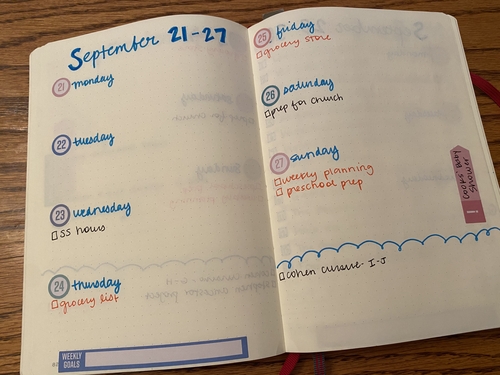 September 21-27
21 monday
22 tuesday
23 wednesday
SS hours
24 thursday
grocery list
WEEKLY
GOALS
25 friday
grocery store
26 saturday
prep for church
27 sunday
weekly planning
preschool prep
Baby
Shower
Cohen cursive- I-J